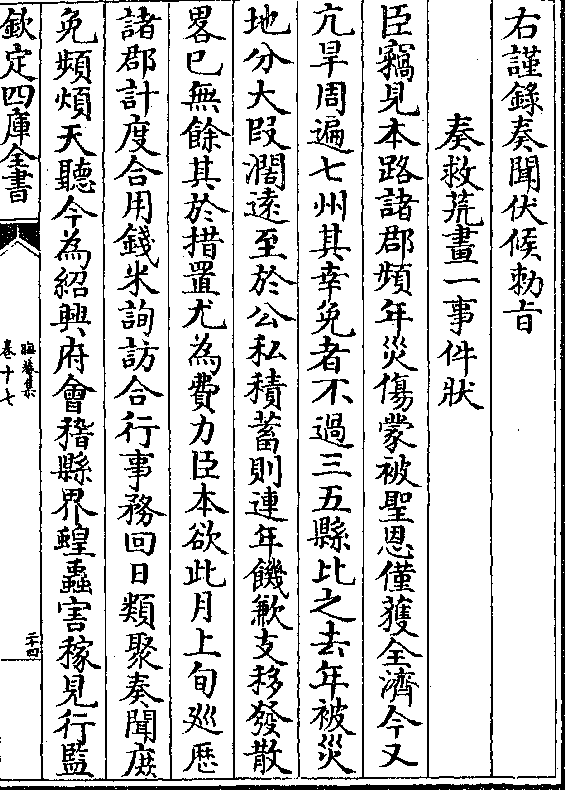 右謹錄奏聞伏候勅旨
奏救荒畫一事件狀
臣竊見本路諸郡頻年災傷蒙被聖恩僅獲全濟今又
亢旱周遍七州其幸免者不過三五縣比之去年被災
地分大段濶逺至於公私積蓄則連年饑歉支移發散
畧已無餘其於措置尤為費力臣本欲此月上旬廵歴
諸郡計度合用錢米詢訪合行事務回日類聚奏聞庻
免頻煩天聽今為紹興府會稽縣界蝗蟲害稼見行監
欽定四庫全書
晦菴集
卷十七
二十四